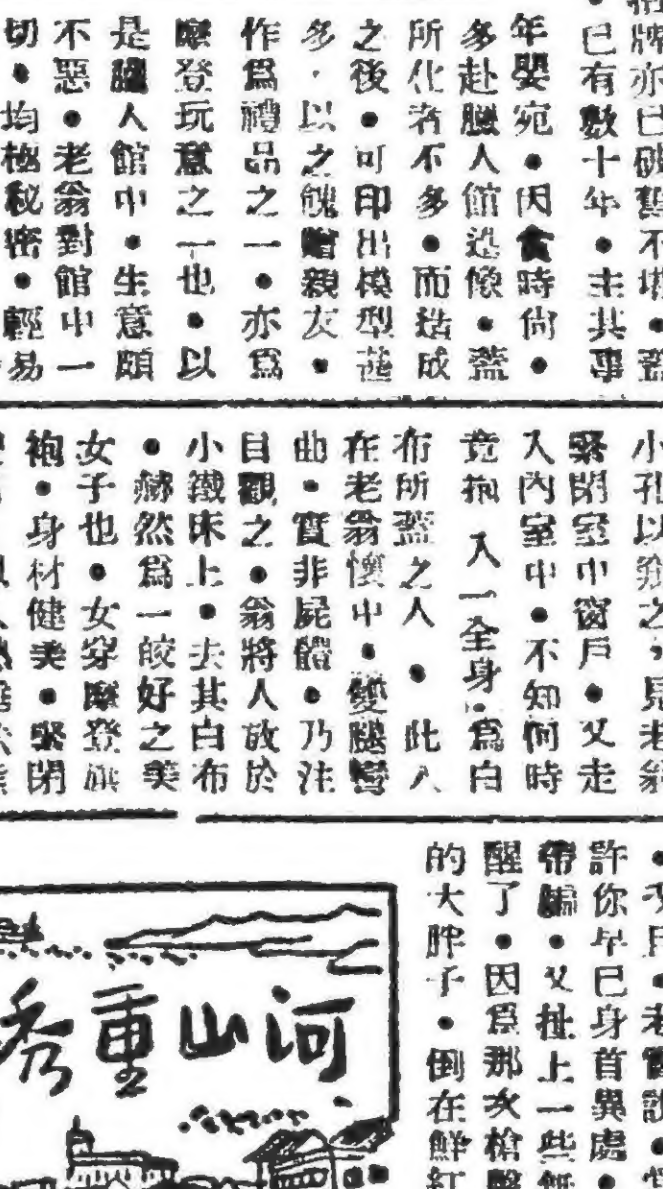 招牌亦已破舊不堪●蓋
●已有數十年●主其事
年嬰宛●因食時尙●
多赴臘人館造像●蓋
所化者不多●而造成
之後●可印出模型甚
多●以之餽贈親友●
作爲禮品之一●亦爲
摩登玩意之一也●以
是臘人館中●生意頗
不惡●老翁對館中一
切●均極秘密●輕易
小孔以窺之●見老翁
緊閉室中窗戶●又走
入內室中●不知何時
竟抱入一全身●爲白
布所蓋之人●此人
在老翁懷中●雙腿彎
曲●實非屍體●乃注
目觀之●翁將人放於
小鐵床上●去其白布
●赫然爲一皎好之美
女子也●女穿摩登旗
袍●身材健美●緊閉
許你早已身首異處●
帶騙●又扯上一些
醒了●因爲那次槍擊
的大胖子●倒在鮮紅
河山重秀